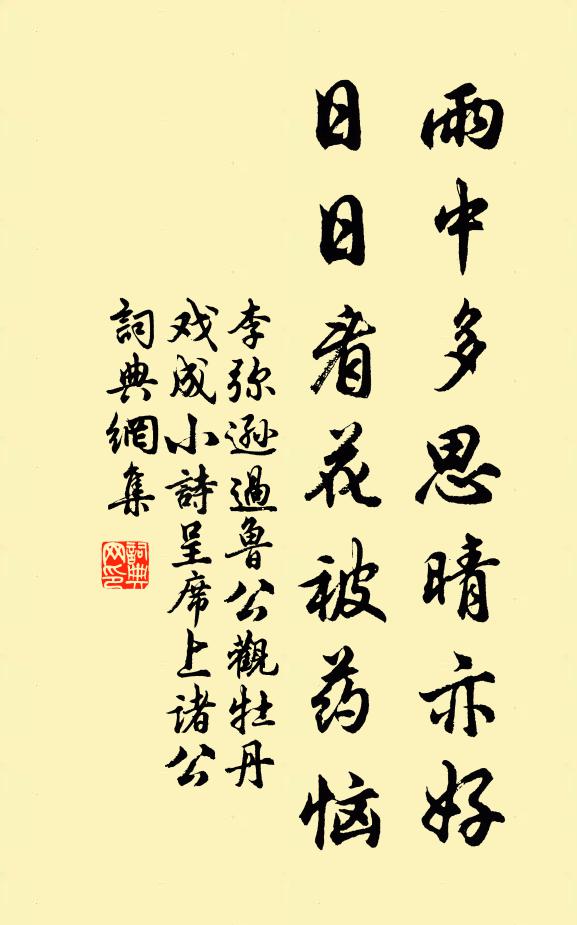 雨中多思晴亦好
日日看花被药恼
李弥逊過魯公觀牡丹
戏成小詩呈席上诸公
詞典網集
詞典
网印